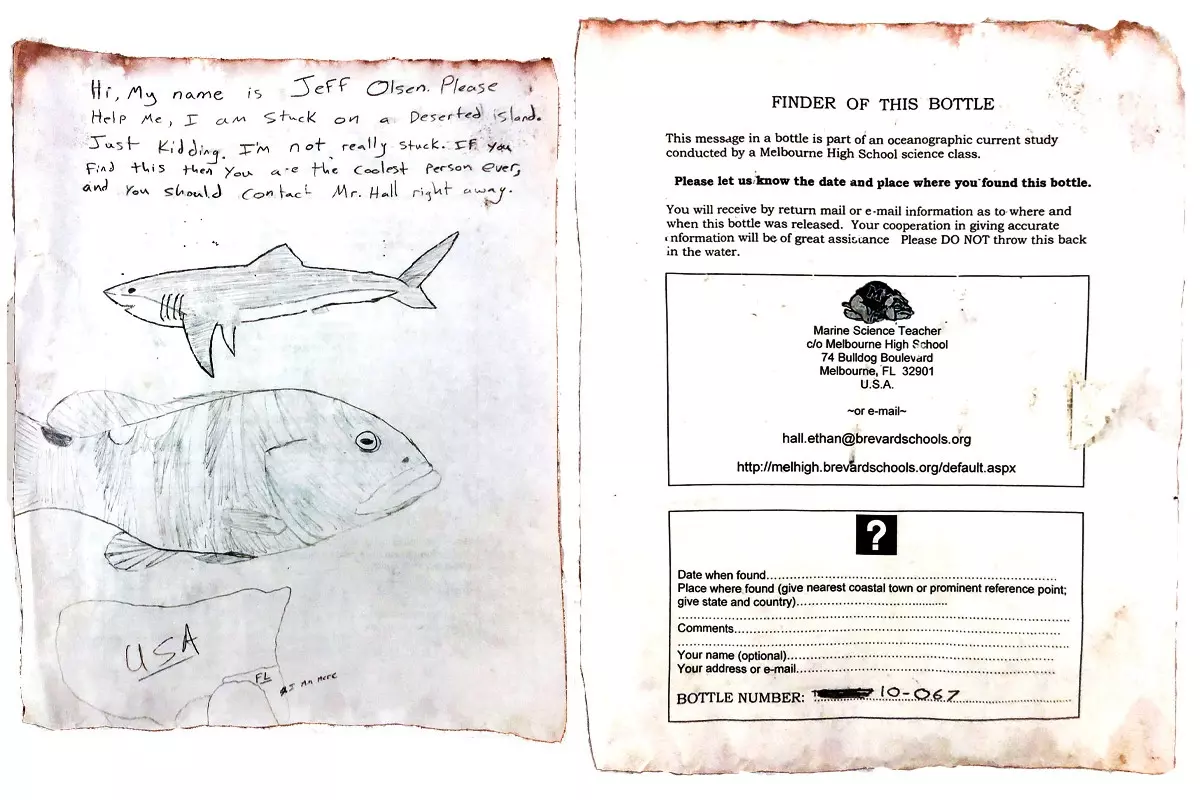 Hi, My name is Jeff Olsen. Please
Help Me, I am Stuck on a Deserted island.
Just Kidding. I'm not really stuck. If you
Find this then you are the coolest person ever,
and you should contact Mr. Hall right away.
USA
FL
I am Here
FINDER OF THIS BOTTLE
This message in a bottle is part of an oceanographic current study
conducted by a Melbourne High School science class.
Please let us know the date and place where you found this bottle.
You will receive by return mail or e-mail information as to where and
when this bottle was released. Your cooperation in giving accurate
information will be of great assistance Please DO NOT throw this back
in the water.
M
Marine Science Teacher
c/o Melbourne High School
74 Bulldog Boulevard
Melbourne, FL 32901
U.S.A.
~or e-mail~
hall.ethan@brevardschools.org
http://melhigh.brevardschools.org/default.aspx
?
Date when found
Place where found (give nearest coastal town or prominent reference point;
give state and country)
Comments
Your name (optional)
Your address or e-mail
BOTTLE NUMBER: 10-067